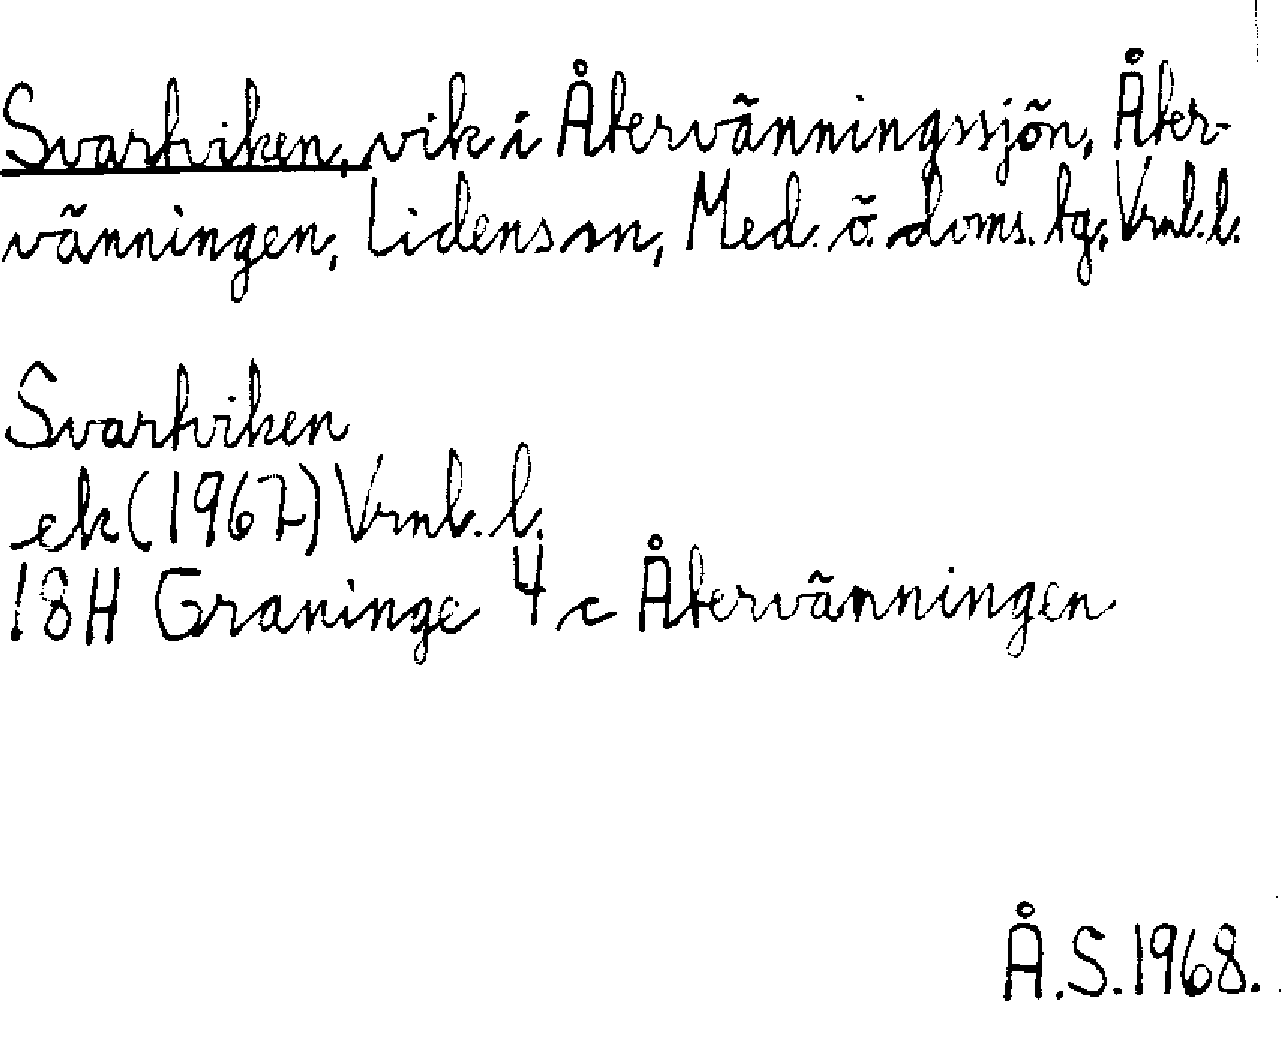 Svartviken, vik i Återvänningssjön, Åter-
vänningen, Lidens sn, Med. ö. doms. tg, Vrnl. l.
Svartviken
ek (1967) Vrnl. l.
18H Graninge 4 c Återvänningen
Å.S. 1968.